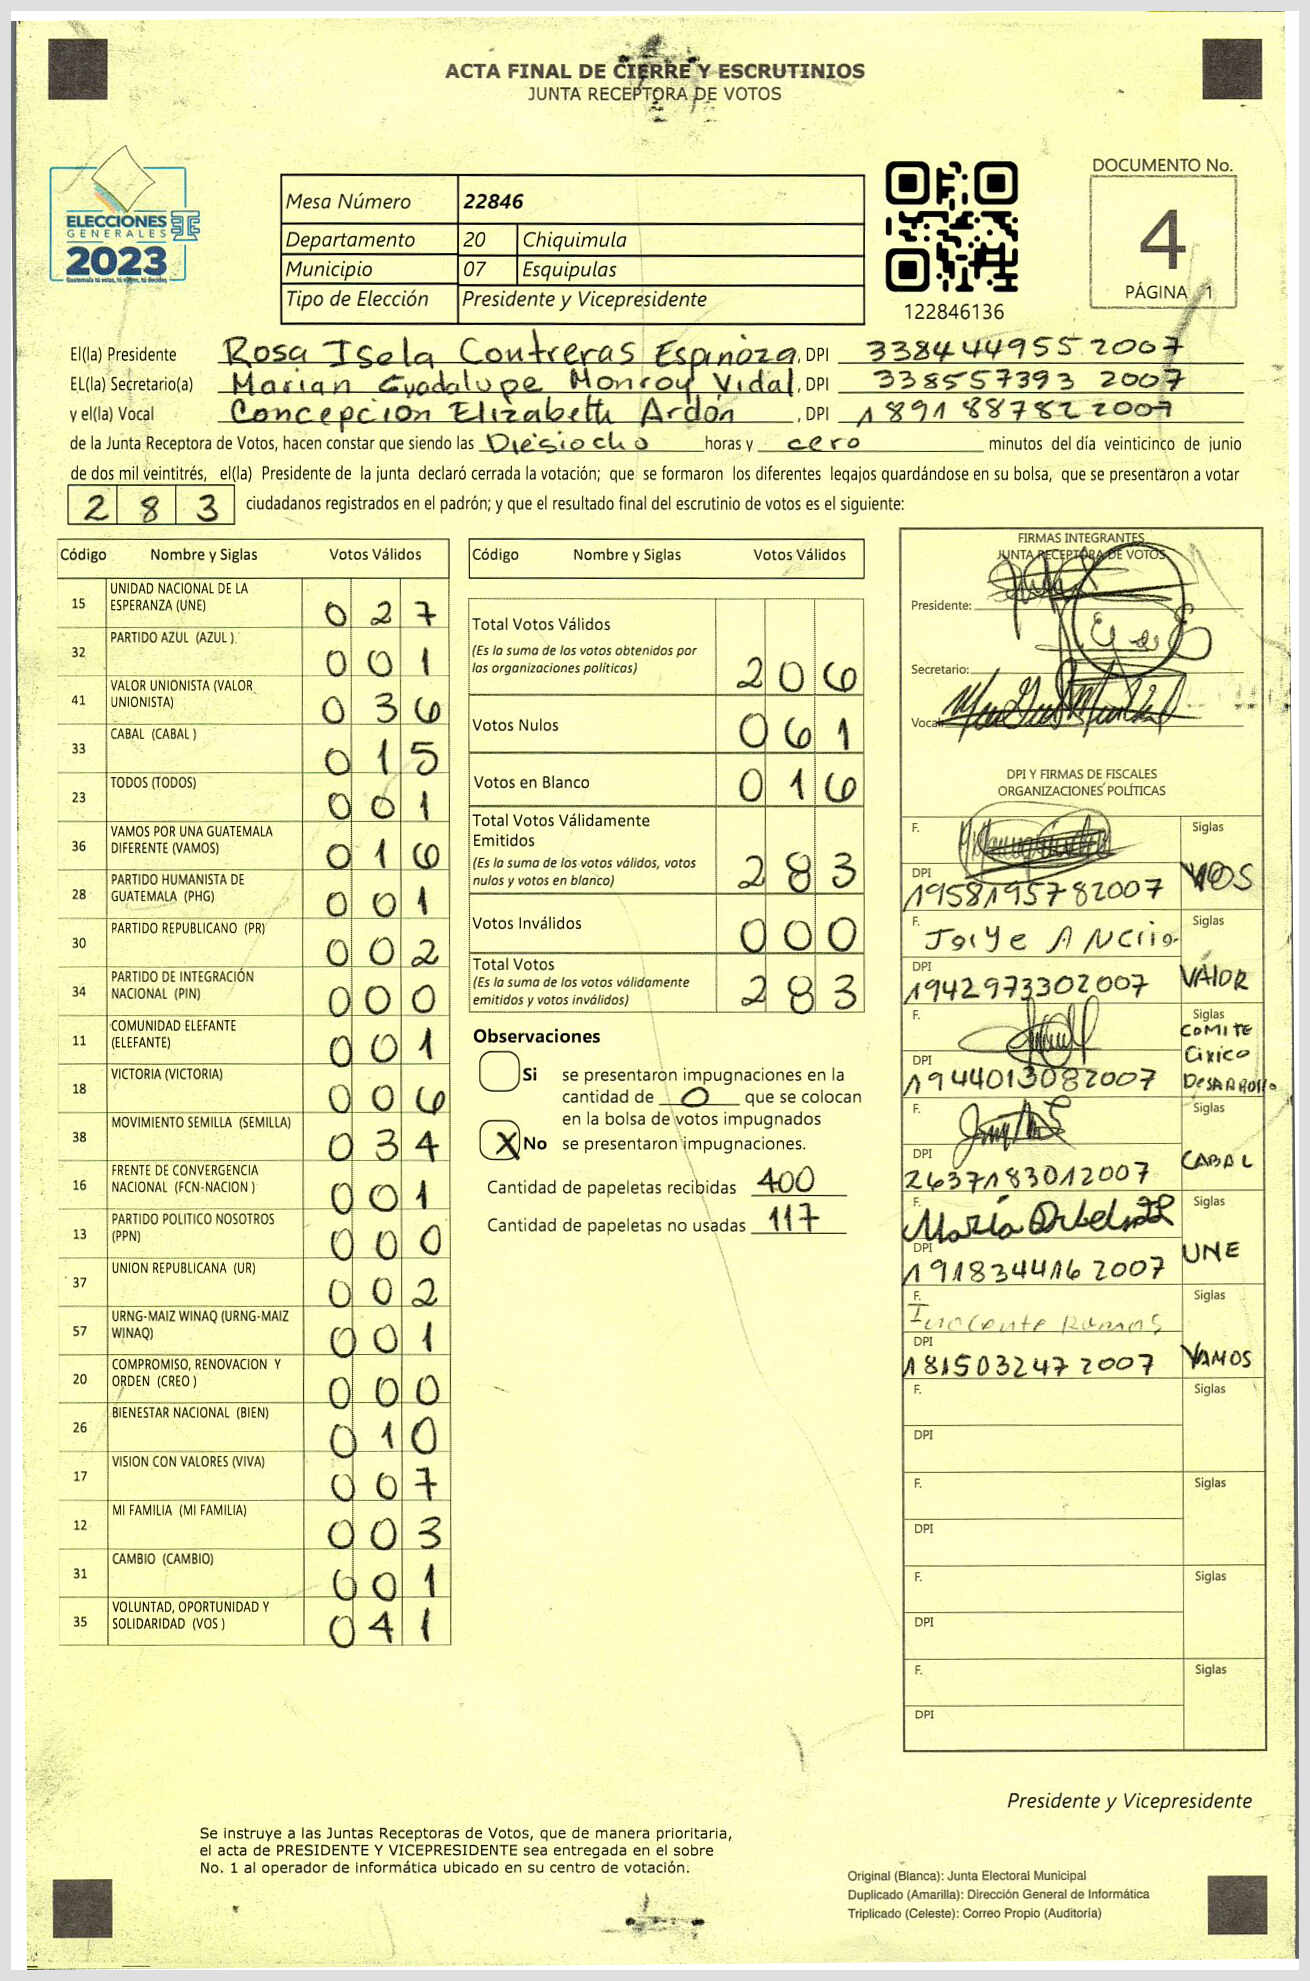 ACTA FINAL DE CIERRE Y ESCRUTINIOS
JUNTA RECEPTORA DE VOTOS
ELECCIONES
GENERALES
2023
Guatemala tú votas, tú eliges, tú decides
Mesa Número 22846
Departamento 20 Chiquimula
Municipio 07 Esquipulas
Tipo de Elección Presidente y Vicepresidente
122846136
DOCUMENTO No.
4
PÁGINA 1
El(la) Presidente Rosa Isela Contreras Espinoza, DPI 3384449552007
EL(la) Secretario(a) Marian Guadalupe Monroy Vidal, DPI 338557393 2007
y el(la) Vocal Concepcion Elizabeth Ardón, DPI 1891887822007
de la Junta Receptora de Votos, hacen constar que siendo las Diesiocho horas y cero minutos del día veinticinco de junio
de dos mil veintitrés, el(la) Presidente de la junta declaró cerrada la votación; que se formaron los diferentes legajos quardándose en su bolsa, que se presentaron a votar
283 ciudadanos registrados en el padrón; y que el resultado final del escrutinio de votos es el siguiente:
Código Nombre y Siglas Votos Válidos
15 UNIDAD NACIONAL DE LA ESPERANZA (UNE) 027
32 PARTIDO AZUL (AZUL ) 001
41 VALOR UNIONISTA (VALOR UNIONISTA) 036
33 CABAL (CABAL ) 015
23 TODOS (TODOS) 001
36 VAMOS POR UNA GUATEMALA DIFERENTE (VAMOS) 016
28 PARTIDO HUMANISTA DE GUATEMALA (PHG) 001
30 PARTIDO REPUBLICANO (PR) 002
34 PARTIDO DE INTEGRACIÓN NACIONAL (PIN) 000
11 COMUNIDAD ELEFANTE (ELEFANTE) 001
18 VICTORIA (VICTORIA) 006
38 MOVIMIENTO SEMILLA (SEMILLA) 034
16 FRENTE DE CONVERGENCIA NACIONAL (FCN-NACION ) 001
13 PARTIDO POLITICO NOSOTROS (PPN) 000
37 UNION REPUBLICANA (UR) 002
57 URNG-MAIZ WINAQ (URNG-MAIZ WINAQ) 001
20 COMPROMISO, RENOVACION Y ORDEN (CREO ) 000
26 BIENESTAR NACIONAL (BIEN) 010
17 VISION CON VALORES (VIVA) 007
12 MI FAMILIA (MI FAMILIA) 003
31 CAMBIO (CAMBIO) 001
35 VOLUNTAD, OPORTUNIDAD Y SOLIDARIDAD (VOS ) 041
Código Nombre y Siglas Votos Válidos
Total Votos Válidos
(Es la suma de los votos obtenidos por las organizaciones políticas) 206
Votos Nulos 061
Votos en Blanco 016
Total Votos Válidamente Emitidos
(Es la suma de los votos válidos, votos nulos y votos en blanco) 283
Votos Inválidos 000
Total Votos
(Es la suma de los votos válidamente emitidos y votos inválidos) 283
Observaciones
Si se presentaron impugnaciones en la
cantidad de 0 que se colocan
en la bolsa de votos impugnados
X No se presentaron impugnaciones.
Cantidad de papeletas recibidas 400
Cantidad de papeletas no usadas 117
FIRMAS INTEGRANTES
JUNTA RECEPTORA DE VOTOS
Presidente:
Secretario:
Vocal:
DPI Y FIRMAS DE FISCALES
ORGANIZACIONES POLÍTICAS
F. Siglas
DPI 1958195782007 VOS
F. Siglas
DPI 1942973302007 VALOR
F. Siglas
DPI 1944013082007 COMITE Civico DESARROllo
F. Siglas
DPI 2637183012007 CABAL
F. María Siglas
DPI 1918344162007 UNE
F. Inocente Ramos Siglas
DPI 1815032472007 VAMOS
F. Siglas
DPI
F. Siglas
DPI
F. Siglas
DPI
F. Siglas
DPI
Presidente y Vicepresidente
Se instruye a las Juntas Receptoras de Votos, que de manera prioritaria,
el acta de PRESIDENTE Y VICEPRESIDENTE sea entregada en el sobre
No. 1 al operador de informática ubicado en su centro de votación.
Original (Blanca): Junta Electoral Municipal
Duplicado (Amarilla): Dirección General de Informática
Triplicado (Celeste): Correo Propio (Auditoría)